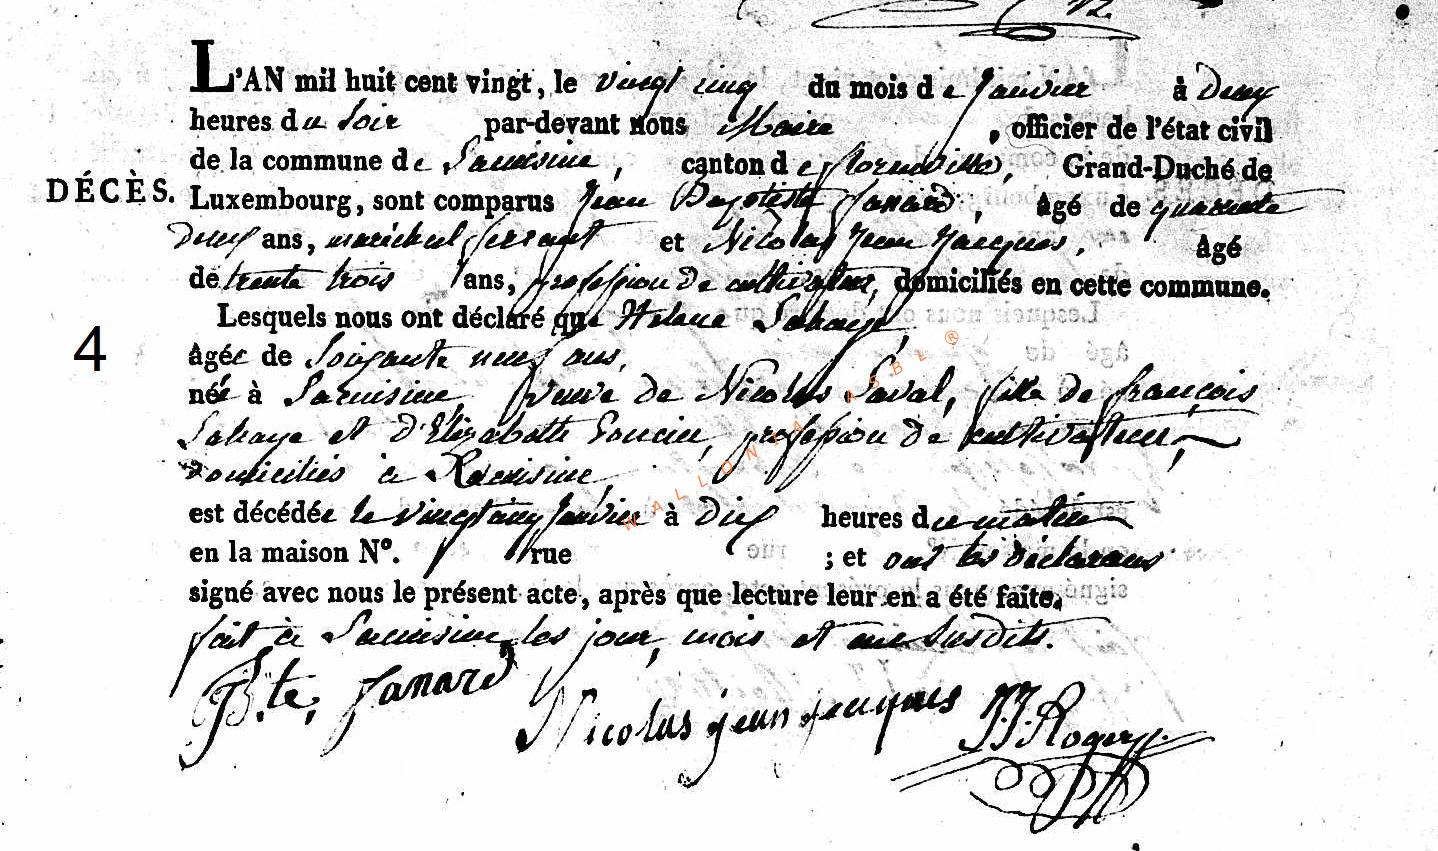 L'AN mil huit cent vingt, le vingt cinq du mois de Janvier à deux
heures du soir par-devant nous Maire, officier de l'état civil
de la commune de, canton de florenville, Grand-Duché de
DÉCÈS. Luxembourg, sont comparus Jean Baptiste, âgé de quarante
deux ans, maréchal ferrant et Nicolas Jean Jacques, âgé
de trente trois ans, profession de cultivateur, domiciliés en cette commune.
Lesquels nous ont déclaré que
4
âgée de soixante neuf ans,
née à veuve de Nicolas, fille de françois
et d'Elizabeth profession de cultivateur,
domiciliés à
est décédée le vingt cinq Janvier à dix heures du matin
en la maison N°. rue ; et ont les déclarans
signé avec nous le présent acte, après que lecture leur en a été faite.
fait à les jour, mois et an susdits.
B.te, Nicolas jean jacques
WALLONIA ASBL ®